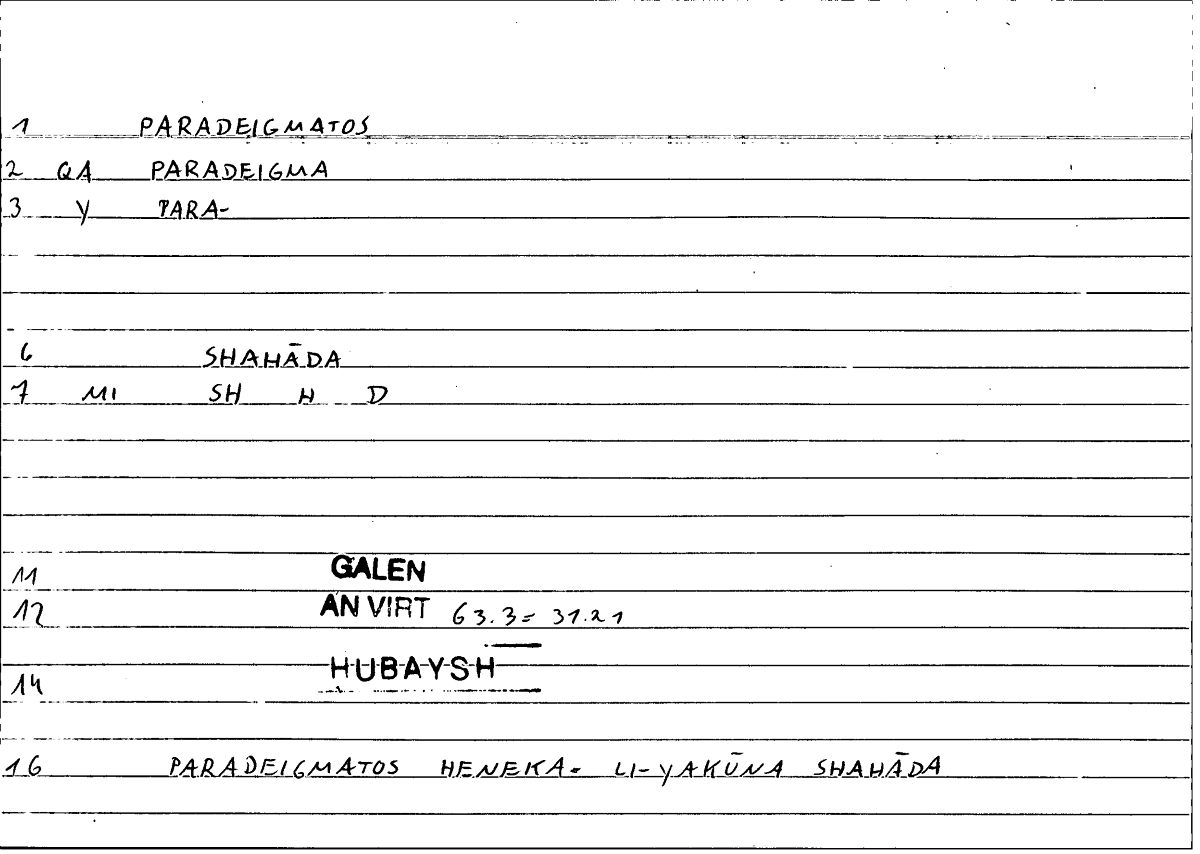 1 PARADEIGMATOS
2 QA PARADEIGMA
3 Y PARA-
6 SHAHĀDA
7 MI SH H D
11 GALEN
12 AN VIRT 63.3 = 31.21
14 HUBAYSH
16 PARADEIGMATOS HENEKA = LI-YAKŪNA SHAHĀDA